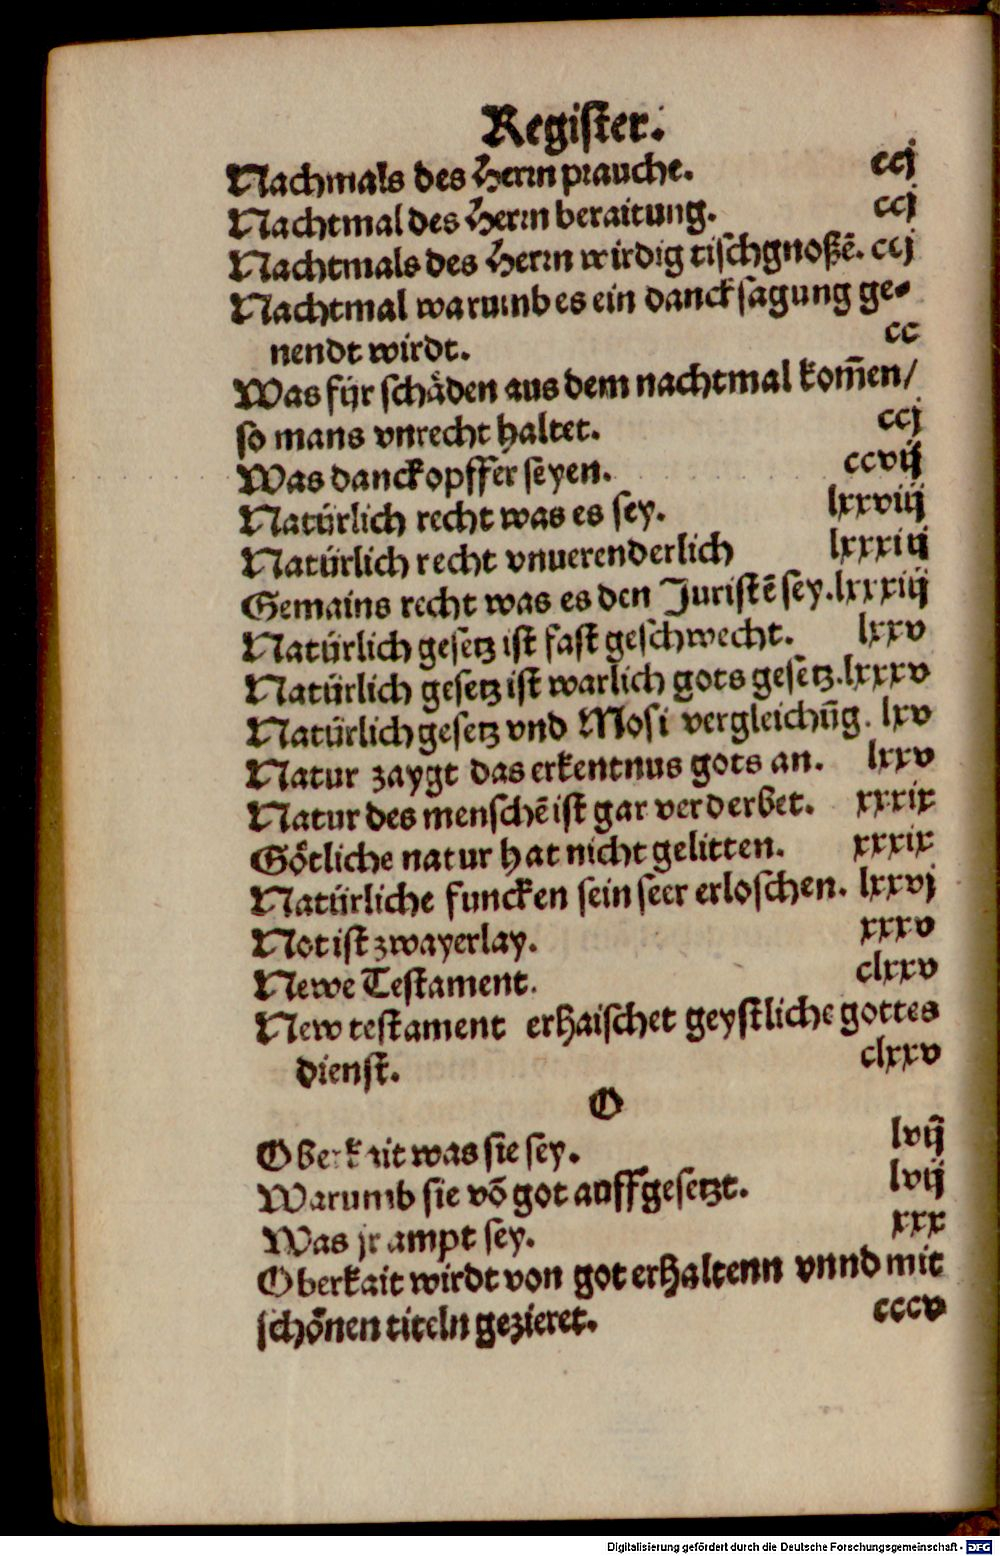 Register.
Nachmals des Herrn prauche. ccj
Nachtmal des Herrn beraitung. ccj
Nachtmals des Herrn wirdig tischgnoßē. ccj
Nachtmal warumb es ein dancksagung ge-
nendt wirdt. cc
Was für schäden aus dem nachtmal kom̄en/
so mans vnrecht haltet. ccj
Was danckopffer seyen. ccvij
Natürlich recht was es sey. lxxviij
Natürlich recht vnuerenderlich lxxxiij
Gemains recht was es den Juristē sey. lxxxiij
Natürlich gesetz ist fast geschwecht. lxxv
Natürlich gesetz ist warlich gots gesetz. lxxxv
Natürlich gesetz vnd Mosi vergleichūg. lxv
Natur zaygt das erkentnus gots an. lxxv
Natur des menschē ist gar verderbet. xxxix
Götliche natur hat nicht gelitten. xxxix
Natürliche funcken sein seer erloschen. lxxvj
Not ist zwayerlay. xxxv
Newe Testament. clxxv
New testament erhaischet geystliche gottes
dienst. clxxv
O
Oberkait was sie sey. lvij
Warumb sie vō got auffgesetzt. lvij
Was jr ampt sey. xxx
Oberkait wirdt von got erhaltenn vnnd mit
schönen titeln gezieret. cccv
Digitalisierung gefördert durch die Deutsche Forschungsgemeinschaft - DFG